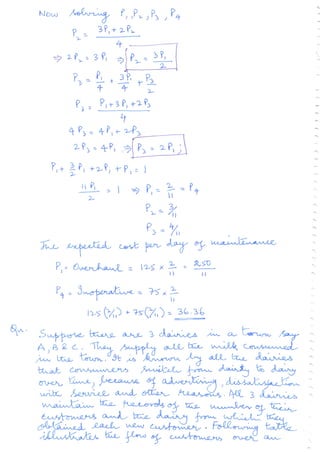 Now solving P₁, P₂, P₃, P₄
P₂ = 3P₁ + 2P₂ / 4
⇒ 2P₂ = 3P₁ ⇒ P₂ = 3P₁ / 2
P₃ = P₁/4 + 3P₁/4 + P₃/2
P₃ = P₁ + 3P₁ + 2P₃ / 4
4P₃ = 4P₁ + 2P₃
2P₃ = 4P₁ ⇒ P₃ = 2P₁
P₁ + 3/2 P₁ + 2P₁ + P₁ = 1
11P₁ / 2 = 1 ⇒ P₁ = 2/11 = P₄
P₂ = 3/11
P₃ = 4/11
The expected cost per day of maintenance
P₁ = Overhaul = 125 × 2/11 = 250/11
P₄ = Inoperative = 75 × 2/11
125(2/11) + 75(2/11) = 36.36
Qn. Suppose there are 3 dairies in a town say
A, B & C. They supply all the milk consumed
in the town. It is known by all the dairies
that consumers switch from dairy to dairy
over time, because of advertising, dissatisfaction
with service and other reasons. All 3 dairies
maintain the records of the number of their
customers and the dairy from which they
obtained each new customer. Following table
illustrates the flow of customers over an